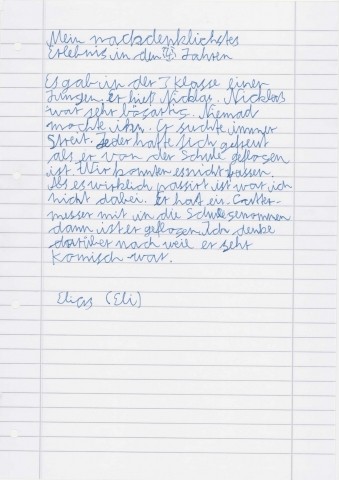 Mein nachdenklichstes
Erlebnis in den Jahren
Es gab in der 3 Klasse einen
Jungen, er hieß Nicklas. Nicklas
war sehr bösartig. Niemad
mochte ihn. Er suchte immer
Streit. Jeder hatte sich gefreut
als er von der Schule geflogen
ist. Wir konnten es nicht fassen.
Als es wirklich passirt ist war ich
nicht dabei. Er hat ein Cutter-
messer mit in die Schule genommen
dann ist er geflogen. Ich denke
darüber nach weil er sehr
komisch war.
Elias (Eli)